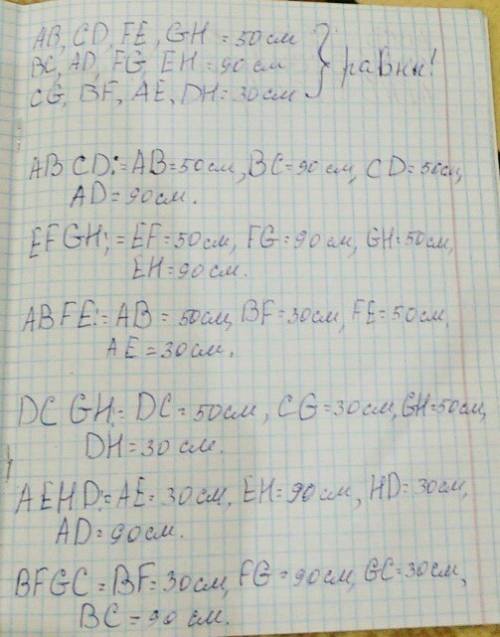 AB, CD, FE, GH = 50 см
BC, AD, FG, EH = 90 см } равны!
CG, BF, AE, DH = 30 см
ABCD:= AB=50см, BC=90 см, CD=50см,
AD=90см.
EFGH:= EF=50см, FG=90см, GH=50см,
EH=90см.
ABFE:= AB = 50см, BF=30см, FE=50см,
AE=30см.
DCGH:= DC=50см, CG=30см, GH=50см,
DH=30 см.
AEHD:= AE=30см, EH=90см, HD=30см,
AD=90см.
BFGC=BF=30см, FG=90см, GC=30см,
BC=90 см.